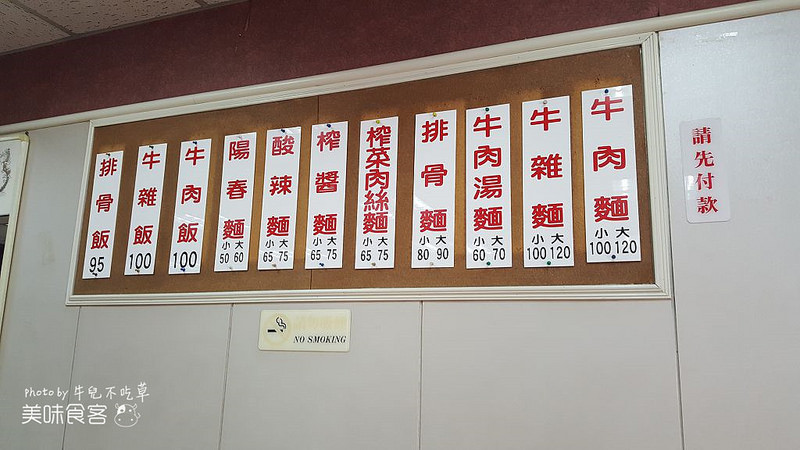 牛肉麵
小 大
100 120
牛雜麵
小 大
100 120
牛肉湯麵
小 大
60 70
排骨麵
小 大
80 90
榨菜肉絲麵
小 大
65 75
榨醬麵
小 大
65 75
酸辣麵
小 大
65 75
陽春麵
小 大
50 60
牛肉飯
100
牛雜飯
100
排骨飯
95
請先付款
NO SMOKING
Photo by 牛兒不吃草
美味食客